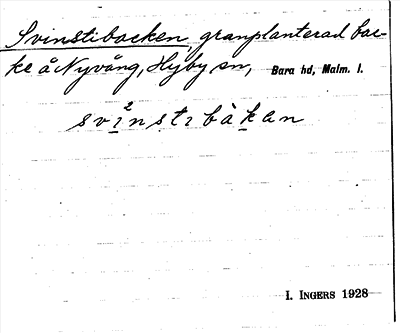 Svinstibacken, granplanterad bac-
ke å Nyvång, Hyby sn, Bara hd, Malm. l.
svinstibàkan
I. INGERS 1928